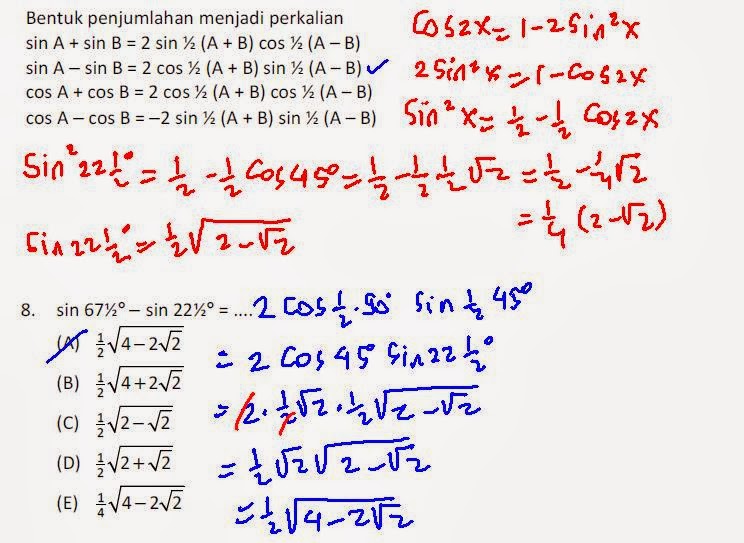 Bentuk penjumlahan menjadi perkalian
sin A + sin B = 2 sin ½ (A + B) cos ½ (A – B)
sin A – sin B = 2 cos ½ (A + B) sin ½ (A – B) ✓
cos A + cos B = 2 cos ½ (A + B) cos ½ (A – B)
cos A – cos B = –2 sin ½ (A + B) sin ½ (A – B)
Cos2x = 1-2Sin²x
2Sin²x = 1-Cos2x
Sin²x = ½ - ½ Cos2x
Sin²22½° = ½ - ½ Cos45° = ½ - ½ ½ √2 = ½ - ¼√2
= ¼ (2-√2)
Sin 22½° = ½√(2-√2)
8. sin 67½° – sin 22½° = .... 2 Cos ½ . 90° Sin ½ 45°
(A) ½√(4 – 2√2)
(B) ½√(4 + 2√2)
(C) ½√(2 – √2)
(D) ½√(2 + √2)
(E) ¼√(4 – 2√2)
= 2 Cos 45° Sin 22½°
= 2 . ½√2 . ½√(2-√2)
= ½ √2 √(2-√2)
= ½√(4-2√2)